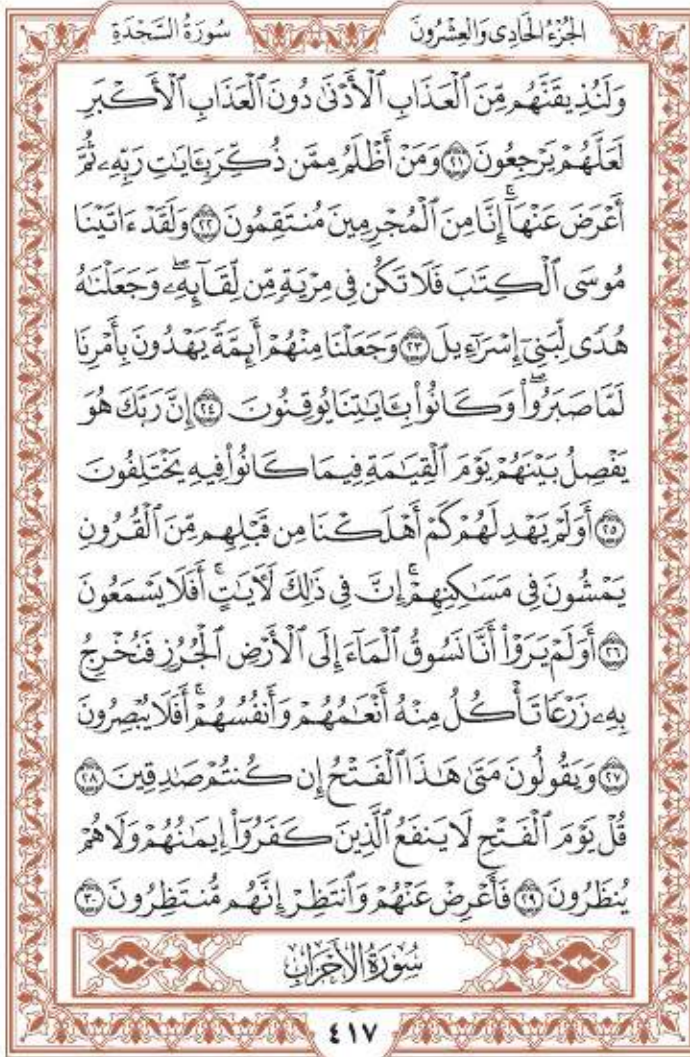 سُورَةُ السَّجْدَةِ
الجُزْءُ الحَادِى وَالعِشْرُونَ
وَلَنُذِيقَنَّهُم مِّنَ ٱلْعَذَابِ ٱلْأَدْنَىٰ دُونَ ٱلْعَذَابِ ٱلْأَكْبَرِ
لَعَلَّهُمْ يَرْجِعُونَ ٢١ وَمَنْ أَظْلَمُ مِمَّن ذُكِّرَ بِـَٔايَـٰتِ رَبِّهِۦ ثُمَّ
أَعْرَضَ عَنْهَآ ۚ إِنَّا مِنَ ٱلْمُجْرِمِينَ مُنتَقِمُونَ ٢٢ وَلَقَدْ ءَاتَيْنَا
مُوسَى ٱلْكِتَـٰبَ فَلَا تَكُن فِى مِرْيَةٍ مِّن لِّقَآئِهِۦ ۖ وَجَعَلْنَـٰهُ
هُدًى لِّبَنِىٓ إِسْرَٰٓءِيلَ ٢٣ وَجَعَلْنَا مِنْهُمْ أَئِمَّةً يَهْدُونَ بِأَمْرِنَا
لَمَّا صَبَرُوا۟ ۖ وَكَانُوا۟ بِـَٔايَـٰتِنَا يُوقِنُونَ ٢٤ إِنَّ رَبَّكَ هُوَ
يَفْصِلُ بَيْنَهُمْ يَوْمَ ٱلْقِيَـٰمَةِ فِيمَا كَانُوا۟ فِيهِ يَخْتَلِفُونَ
٢٥ أَوَلَمْ يَهْدِ لَهُمْ كَمْ أَهْلَكْنَا مِن قَبْلِهِم مِّنَ ٱلْقُرُونِ
يَمْشُونَ فِى مَسَـٰكِنِهِمْ ۚ إِنَّ فِى ذَٰلِكَ لَـَٔايَـٰتٍ ۖ أَفَلَا يَسْمَعُونَ
٢٦ أَوَلَمْ يَرَوْا۟ أَنَّا نَسُوقُ ٱلْمَآءَ إِلَى ٱلْأَرْضِ ٱلْجُرُزِ فَنُخْرِجُ
بِهِۦ زَرْعًا تَأْكُلُ مِنْهُ أَنْعَـٰمُهُمْ وَأَنفُسُهُمْ ۖ أَفَلَا يُبْصِرُونَ
٢٧ وَيَقُولُونَ مَتَىٰ هَـٰذَا ٱلْفَتْحُ إِن كُنتُمْ صَـٰدِقِينَ ٢٨
قُلْ يَوْمَ ٱلْفَتْحِ لَا يَنفَعُ ٱلَّذِينَ كَفَرُوٓا۟ إِيمَـٰنُهُمْ وَلَا هُمْ
يُنظَرُونَ ٢٩ فَأَعْرِضْ عَنْهُمْ وَٱنتَظِرْ إِنَّهُم مُّنتَظِرُونَ ٣٠
سُورَةُ الأَحْزَابِ
٤١٧